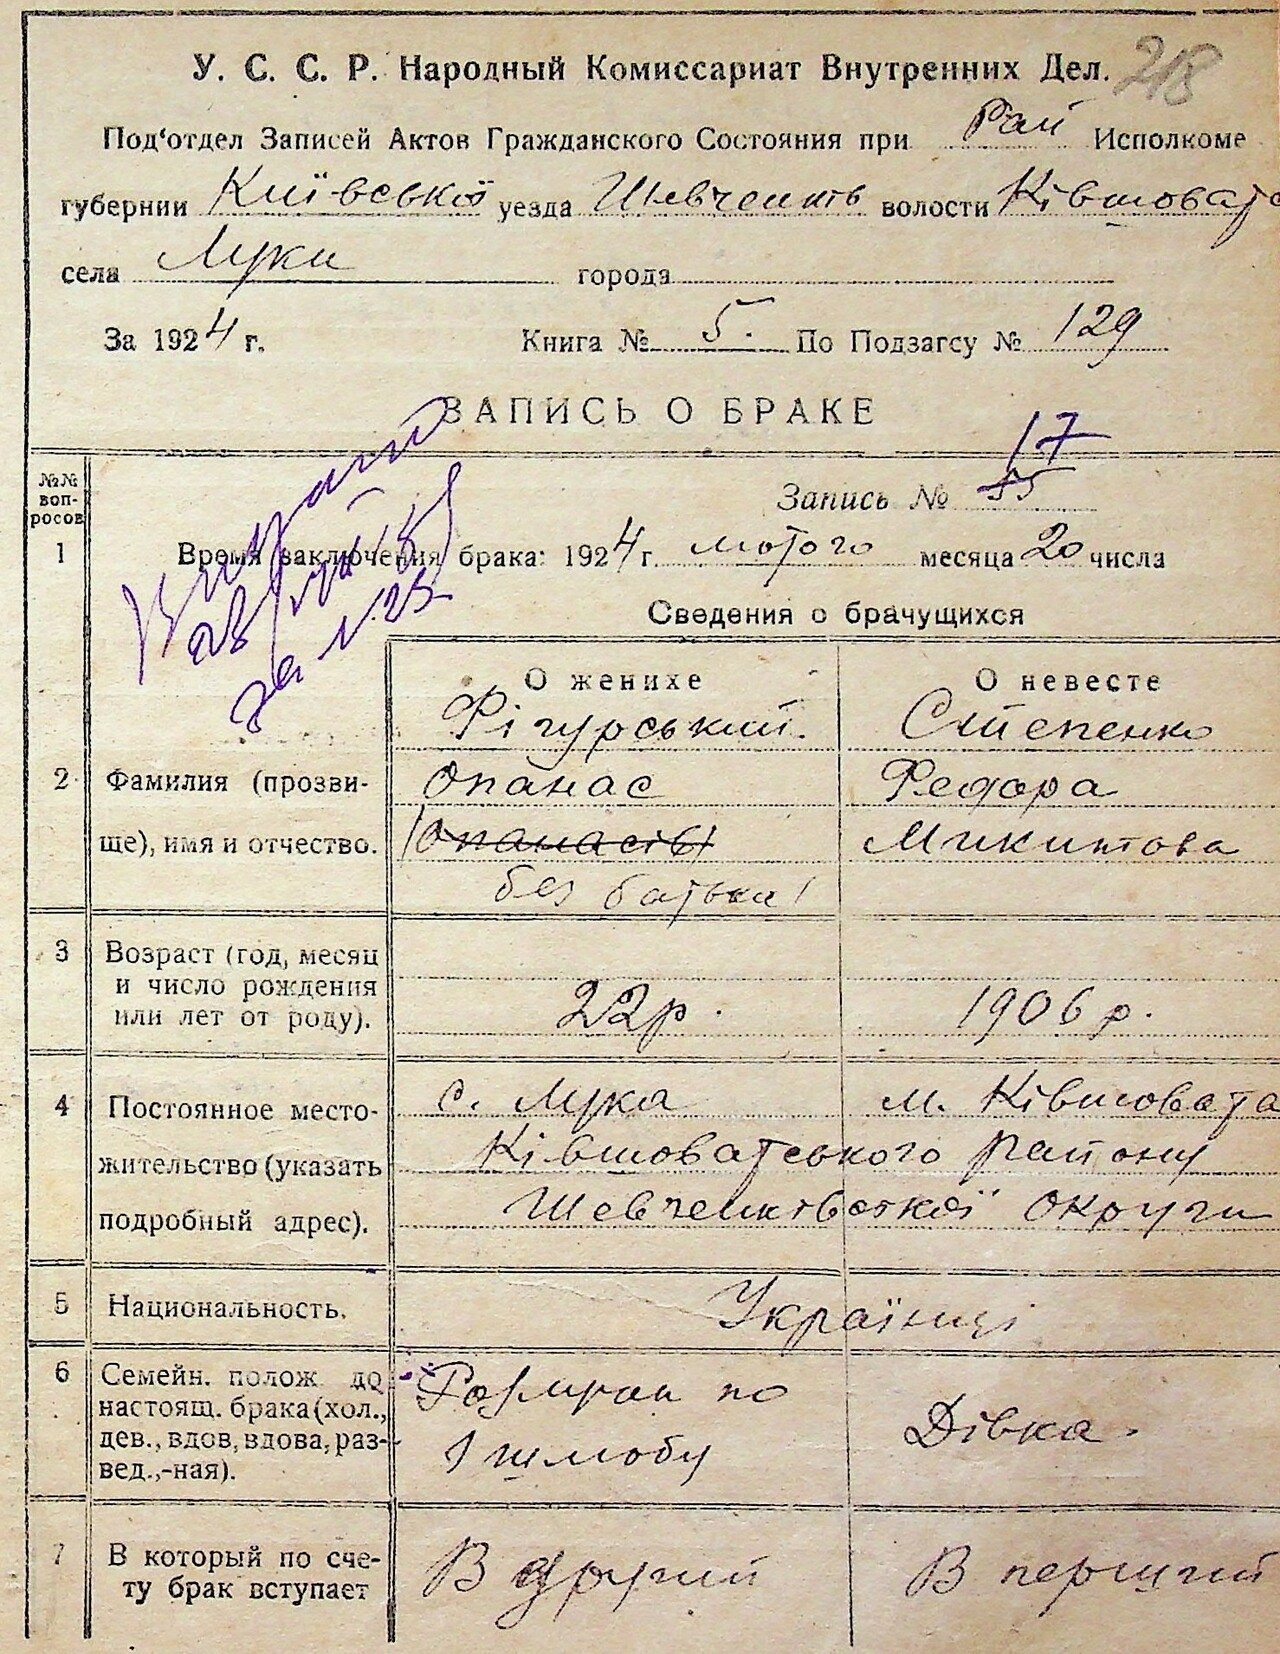 218
У. С. С. Р. Народный Комиссариат Внутренних Дел.
Под'отдел Записей Актов Гражданского Состояния при Рай Исполкоме
губернии Київської уезда Шевченків волости Ківшовата
села Луки города
За 1924 г. Книга № 5. По Подзагсу № 129
ЗАПИСЬ О БРАКЕ
17
№№ вопросов
Запись № 55
1 Время заключения брака: 1924 г. лютого месяца 20 числа
за № 23
Сведения о брачущихся
О женихе О невесте
Фігурський. Степенко
2 Фамилия (прозви- Опанас Федора
ще), имя и отчество. (Опанасів) Микитова
без батька)
3 Возраст (год, месяц
и число рождения 22 р. 1906 р.
или лет от роду).
4 Постоянное место- с. Лука м. Ківшовата
жительство (указать Ківшоватського району
подробный адрес). Шевченківської округи
5 Национальность. Українці
6 Семейн. полож до Розлучен по
настоящ. брака (хол.,
дев., вдов, вдова, раз- 1 шлюбу Дівка.
вед.,-ная).
7 В который по сче- В другий В перший
ту брак вступает